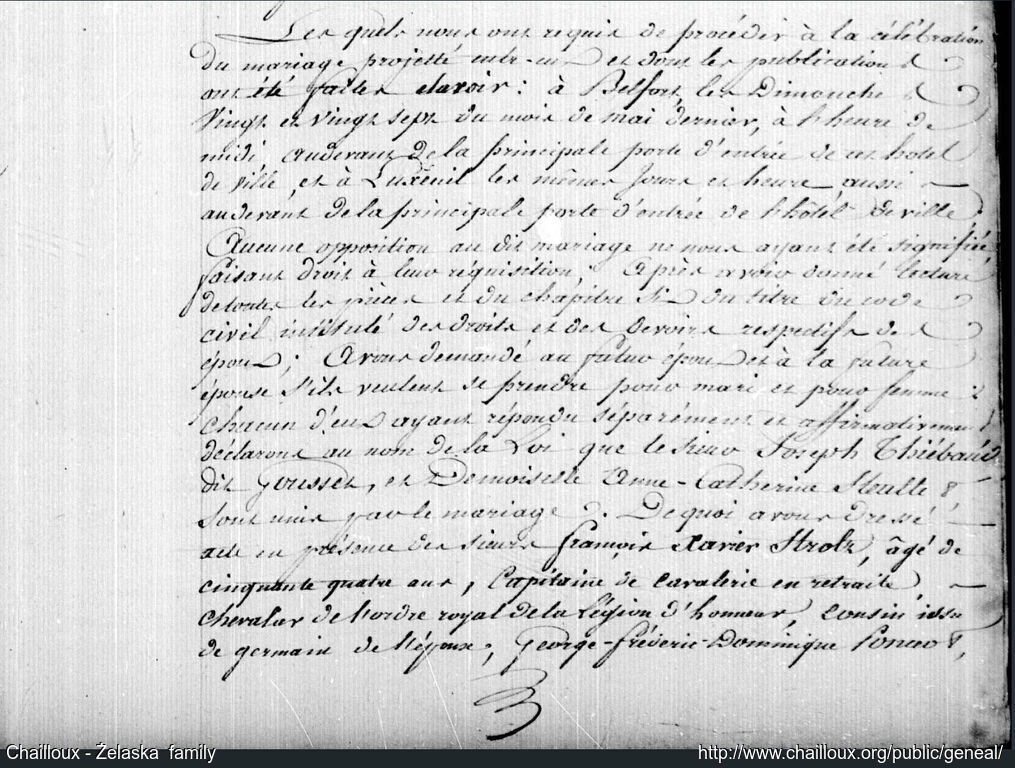 Les quels nous ont requis de procéder à la célébration
du mariage projetté entr-eux et dont les publications
ont été faites savoir : à Belfort, les Dimanche
Vingt et vingt sept du mois de mai dernier, à l'heure de
midi, audevant de la principale porte d'entrée de cet hôtel
de ville, et à Luxeuil les mêmes jours et heure, aussi
audevant de la principale porte d'entrée de l'hôtel de ville
Aucune opposition au dit mariage ne nous ayant été signifiée
faisant droit à leur réquisition, Après avoir donné lecture
de toutes les pièces et du chapitre six du titre du code
civil intitulé des droits et des devoirs respectifs des
époux ; Avons demandé au futur époux et à la future
épouse s'ils veulent se prendre pour mari et pour femme :
chacun d'eux ayant répondu séparément et affirmativement
déclarons au nom de la Loi que le sieur Joseph Thiébaud
dit Gousset, et Demoiselle Anne-Catherine
sont unis par le mariage. De quoi avons dressé
acte en présence des sieurs françois Xavier Strolz, âgé de
cinquante quatre ans, Capitaine de cavalerie en retraite
chevalier de l'ordre royal de la Légion d'honneur, cousin issu
de germain de l'époux ; George-fréderic-Dominique
Chailloux - Żelaska family
http://www.chailloux.org/public/geneal/